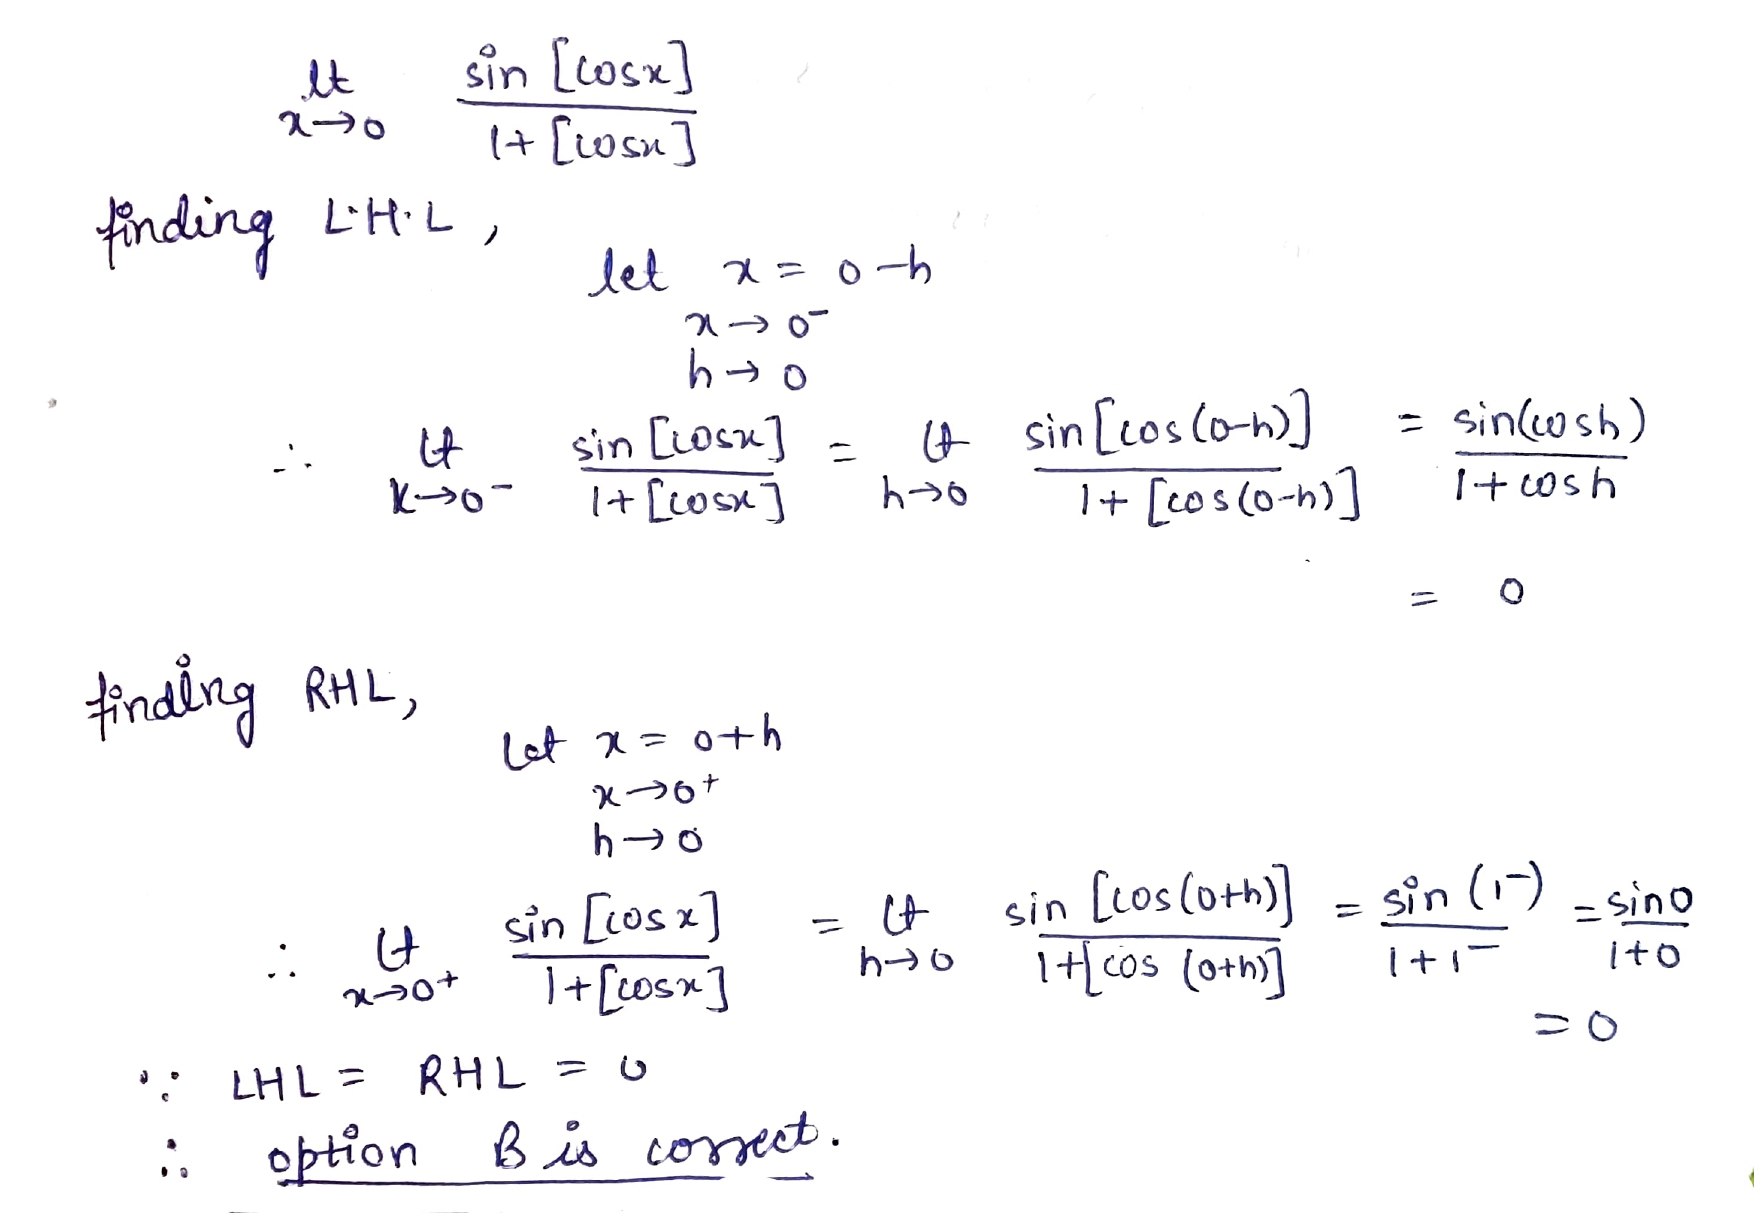 lt x→0 sin [cosx] / 1+ [cosx]
finding L.H.L,
let x = 0-h
x→0⁻
h→0
∴ lt x→0⁻ sin [cosx] / 1+[cosx] = lt h→0 sin[cos(0-h)] / 1+ [cos(0-h)] = sin(cosh) / 1+cosh
= 0
finding RHL,
Let x = 0+h
x→0⁺
h→0
∴ lt x→0⁺ sin [cosx] / 1+[cosx] = lt h→0 sin [cos(0+h)] / 1+[cos (0+h)] = sin (1⁻) / 1+1⁻ = sin0 / 1+0
= 0
∵ LHL = RHL = 0
∴ option B is correct.